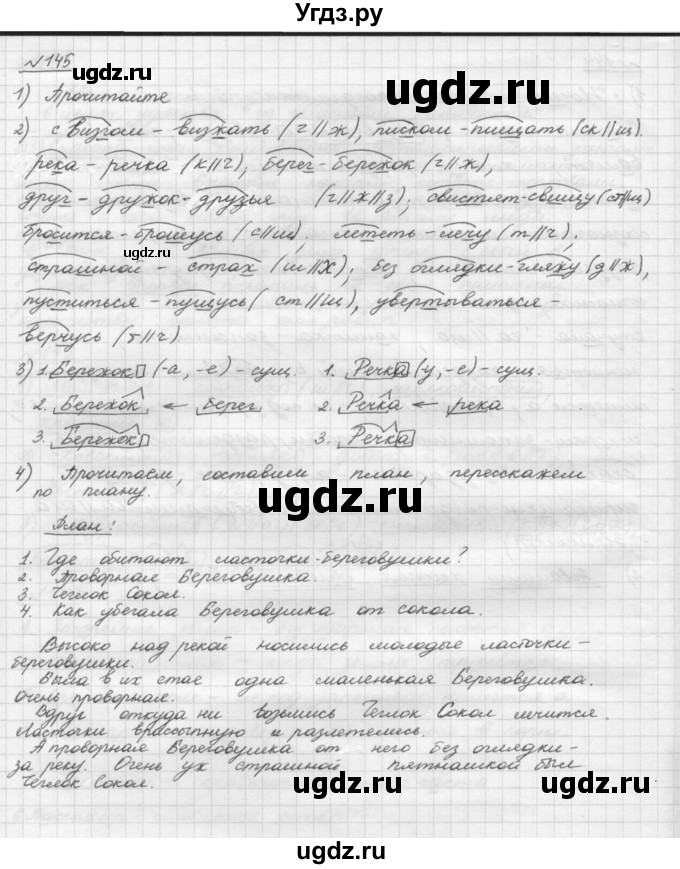 Угдз.ру
№145
ugdz.ru ugdz.ru ugdz.ru
1) Прочитайте
2) с визгом – визжать (г//ж), писком – пищать (ск//щ).
река – речка (к//ч), берег – бережок (г//ж),
друг – дружок – друзья (г//ж//з); свистят – свищу (ст//щ)
бросится – брошусь (с//ш), лететь – лечу (т//ч),
ugdz.ru
страшной – страх (ш//х); без оглядки – гляжу (д//ж),
пуститься – пущусь (ст//щ), увертываться –
верчусь (т//ч).
3) 1. Бережок (-а, -е) – сущ. 1. Речка (-у, -е) – сущ.
2. Бережок ← берег 2. Речка ← река
3. Бережок 3. Речка
4) Прочитаем, составим план, перескажем
по плану.
ugdz.ru
План:
1. Где обитают ласточки-береговушки?
2. Проворная Береговушка.
3. Чеглок Сокол.
4. Как убегала Береговушка от сокола.
ugdz.ru ugdz.ru
Высоко над рекой носились молодые ласточки-
береговушки.
Была в их стае одна маленькая Береговушка.
Очень проворная.
Вдруг откуда ни возьмись Чеглок Сокол мчится.
Ласточки врассыпную и разлетелись.
А проворная Береговушка от него без оглядки –
за реку. Очень уж страшной пятнашкой был
Чеглок Сокол.
ugdz.ru
ugdz.ru